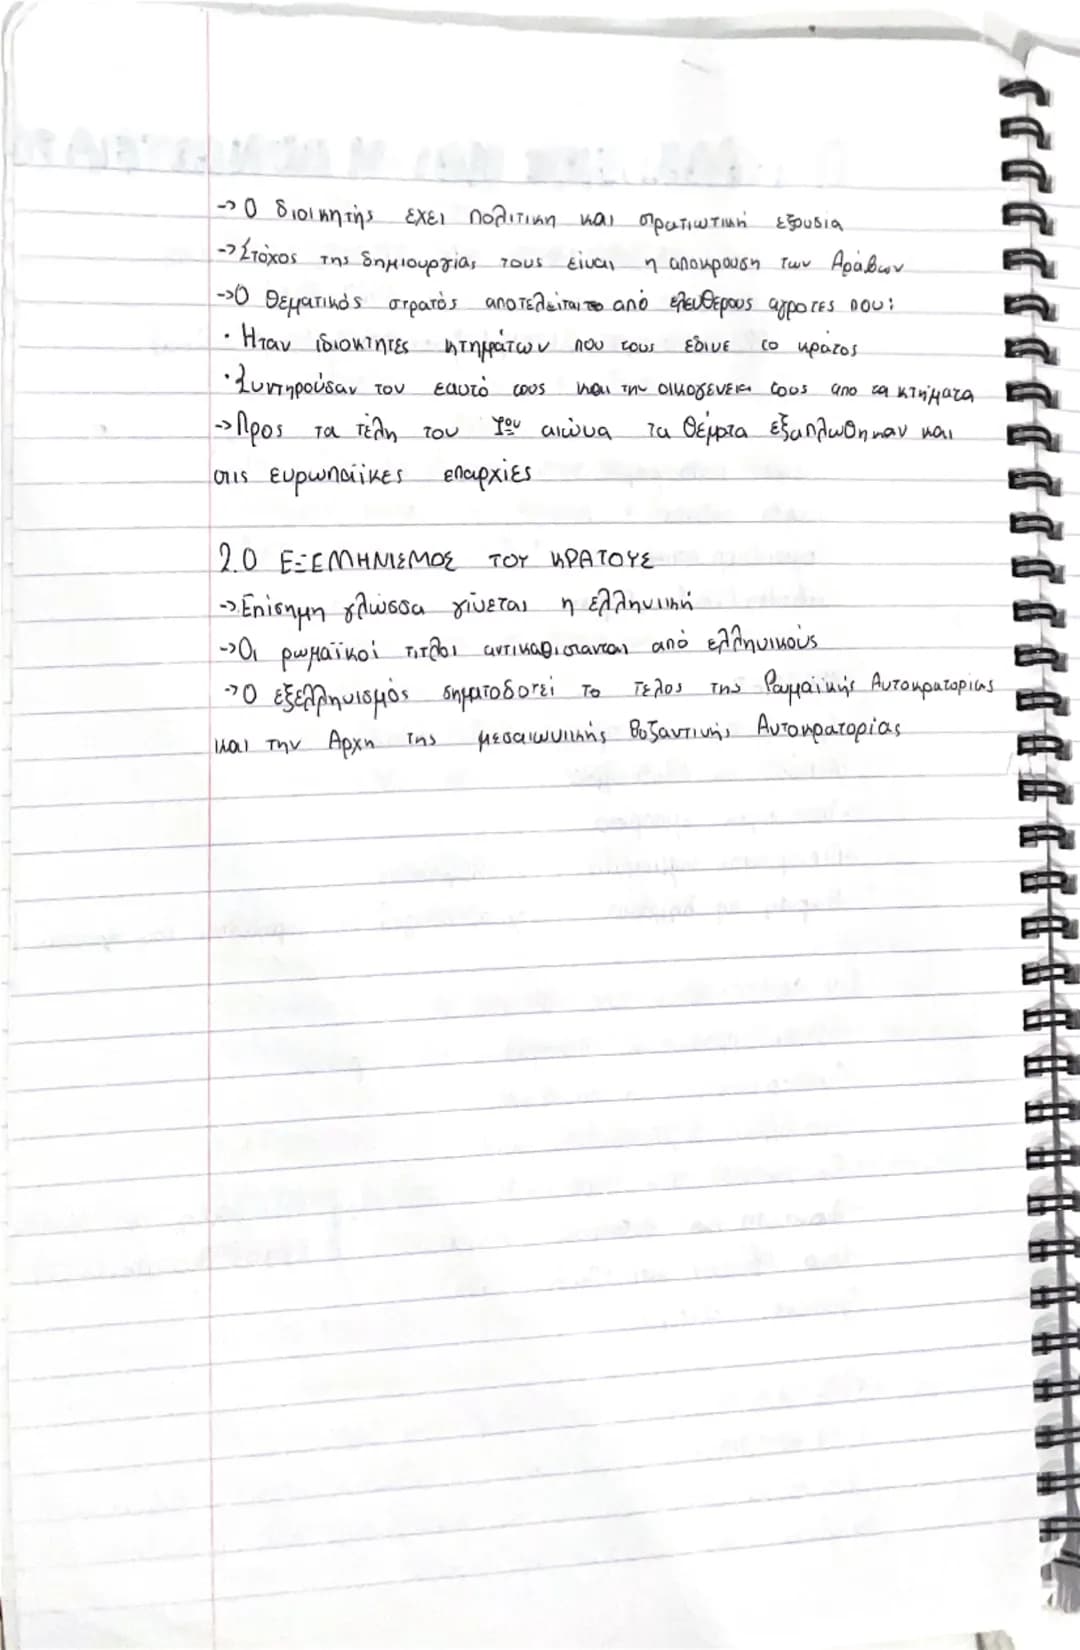 -> Ο διοικητής έχει πολιτικη και στρατιωτική εξουσία
-> Στόχος της δημιουργίας τους είναι η αποκρουση των Αράβων
-> Ο θεματικός στρατός αποτελείται από ελευθερους αγροτες που:
· Ήταν ιδιοκτητες κτημάτων που τους έδινε το κράτος
· Συντηρούσαν τον εαυτό τους και την οικογένεια τους απο τα κτήματα
-> Προς τα τέλη του 7ου αιώνα τα θέματα εξαπλωθηκαν και
στις ευρωπαϊκες επαρχίες
2.Ο ΕΞΕΛΛΗΝΙΣΜΟΣ ΤΟΥ ΚΡΑΤΟΥΣ
-> Επίσημη γλώσσα γίνεται η ελληνική
-> Οι ρωμαϊκοί τιτλοι αντικαθιστανται από ελληνικούς
-> Ο εξελληνισμός σηματοδοτεί το τελος της Ρωμαϊκής Αυτοκρατορίας
και την Αρχη της μεσαιωνικής Βυζαντινής Αυτοκρατορίας